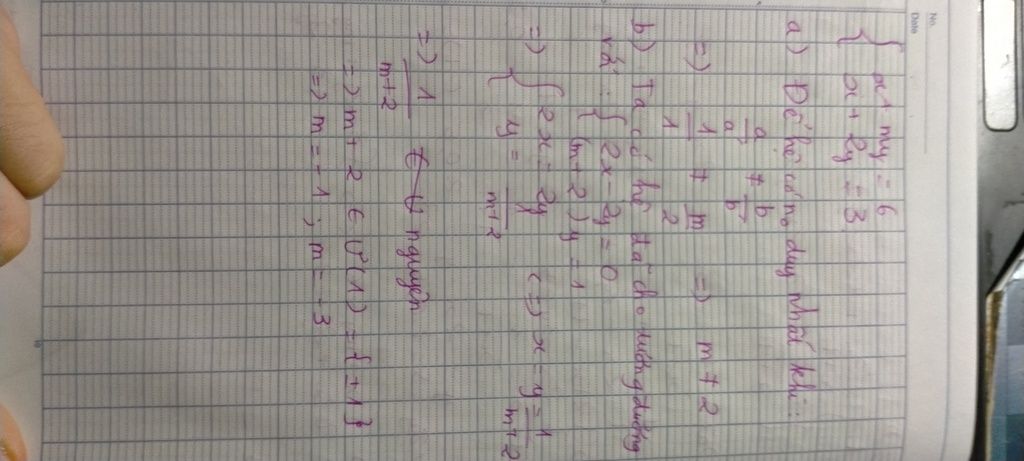 No.
Date
{ x + my = 6
x + 2y = 3
a) Để hệ có no duy nhất khi:
a/a' ≠ b/b'
=> 1/1 ≠ m/2 => m ≠ 2
b) Ta có hệ đã cho tương đương
với: { 2x - 2y = 0
(m+2)y = 1
=> { 2x = 2y <=> x = y = 1/m+2
y = 1/m+2
=> 1/m+2 nguyên
=> m + 2 ∈ Ư(1) = {±1}
=> m = -1 ; m = -3